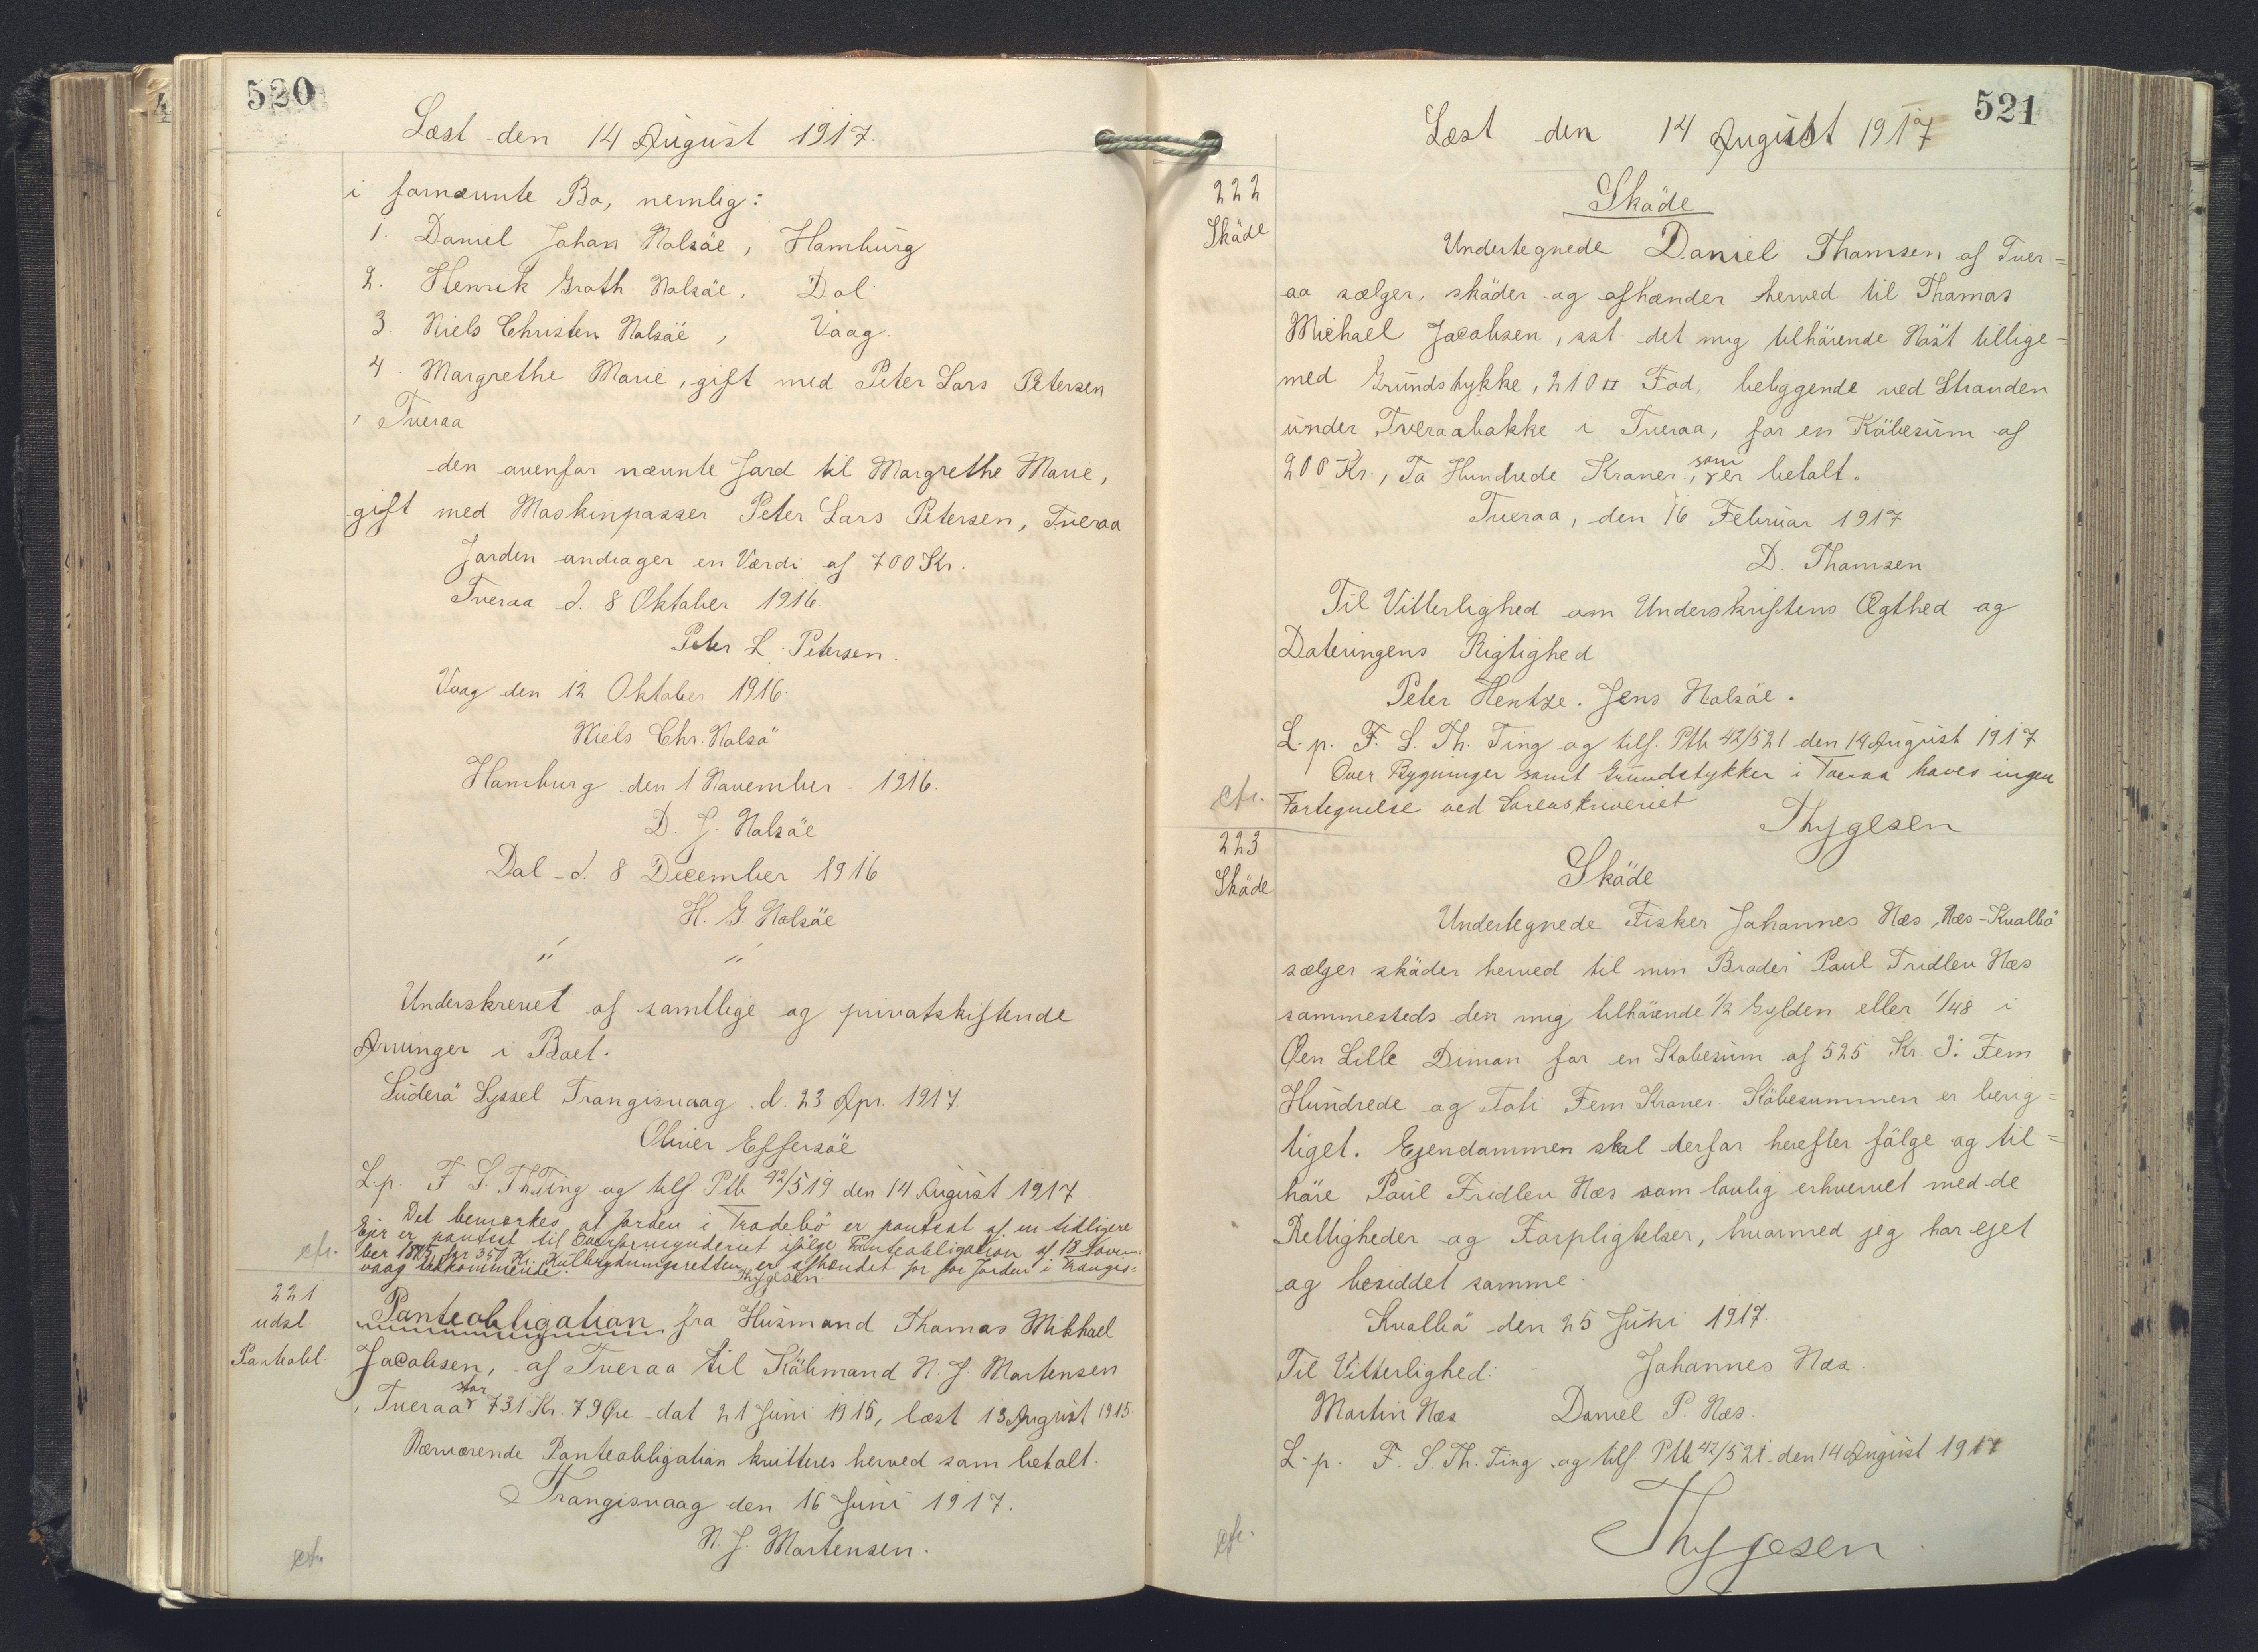 520
Læst den 14 August 1917.
i fornævnte Bo, nemlig:
1. Daniel Johan Nolsöe, Hamburg
2. Henrik Groth Nolsöe, Dal
3. Niels Christen Nolsöe, Vaag.
4. Margrethe Marie, gift med Peter Lars Petersen
i Tveraa
den ovenfor nævnte Jord til Margrethe Marie,
gift med Maskinpasser Peter Lars Petersen, Tveraa
Jorden andrager en Værdi af 700 Kr.
Tveraa d. 8 Oktober 1916
Peter L. Petersen.
Vaag den 12 Oktober 1916.
Niels Chr. Nolsö
Hamburg den 1 November 1916.
D. J. Nolsöe
Dal d. 8 December 1916
H. G. Nolsöe
" "
Underskrevet af samtlige og privatskiftende
Arvinger i Boet.
Suderö Syssel Trangisvaag d. 23 Apr. 1917.
Oliver Effersöe
L. p. F. S. Th Ting og tilf. Ptb 42/519 den 14 August 1917
Det bemærkes at Jorden i Trodebö er pantsat af en tidligere
Ejer er pantsat til Overformynderiet ifölge Panteobligation af 18 Novem-
ber for 350 Kr. Kulbrydningsretten er afhændet for Jorden i Trangis-
vaag vedkommende.
Thygesen
cfr.
221
udsl.
Panteobl.
Panteobligation fra Husmand Thomas Mikkael
Jacobsen, af Tveraa til Köbmand N. J. Mortensen
i Tveraa stor 731 Kr. 79 Øre dat 21 Juni 1915, læst 13 August 1915.
Nærværende Panteobligation kvitteres herved som betalt.
Trangisvaag den 16 Juni 1917.
N. J. Mortensen.
cfr.
521
Læst den 14 August 1917
222
Sköde
Sköde
Undertegnede Daniel Thomsen af Tver=
aa sælger, sköder og afhænder herved til Thomas
Michael Jacobsen, sst. det mig tilhörende Nöst tillige=
med Grundstykke, 210 □ Fod, beliggende ved Stranden
under Tveraabakke i Tveraa, for en Köbesum af
200 Kr., To Hundrede Kroner, som er betalt.
Tveraa, den 16 Februar 1917
D. Thomsen
Til Vitterlighed om Underskriftens Ægthed og
Dateringens Rigtighed
Peter Hentze. Jens Nolsöe.
L. p. F. S. Th. Ting og tilf. Ptb 42/521 den 14 August 1917
Over Bygninger samt Grundstykker i Tveraa haves ingen
Fortegnelse ved Sorenskriveriet
Thygesen
cfr.
223
Sköde
Sköde
Undertegnede Fisker Johannes Næs, Næs-Kvalbö
sælger sköder herved til min Broder Poul Fridlev Næs
sammesteds den mig tilhörende 1/2 Gylden eller 1/48 i
Øen Lille Dimon for en Kobesum af 525 Kr. ɔ: Fem
Hundrede og Toti Fem Kroner. Köbesummen er berig=
tiget. Ejendommen skal derfor herefter fölge og til=
höre Poul Fridlev Næs som lovlig erhvervet med de
Rettigheder og Forpligtelser, hvormed jeg har ejet
og besiddet samme.
Kvalbö den 25 Juni 1917.
Til Vitterlighed: Johannes Næs.
Martin Næs Daniel P. Næs.
L. p. F. S. Th. Ting og tilf. Ptb 42/521 den 14 August 1917
Thygesen
cfr.